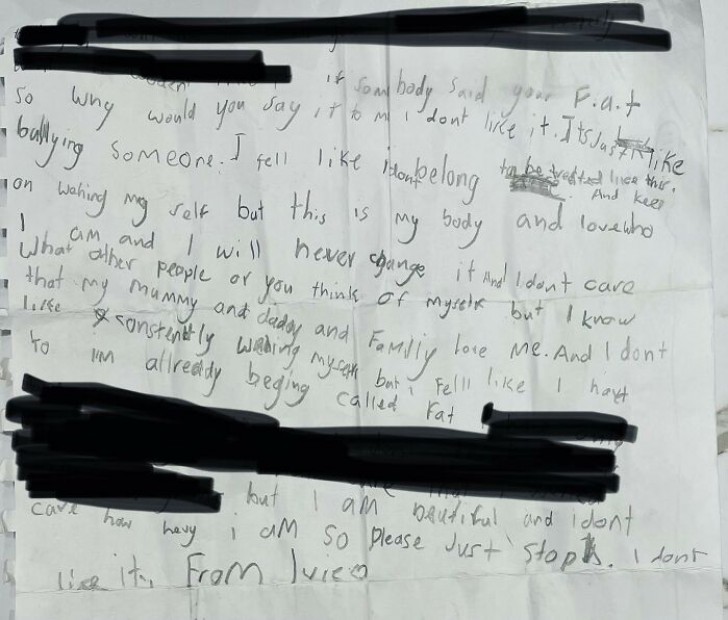 if sombody said your F.a.t
So Why would you say it to m I dont like it. Its Just like
bullying someone. I fell like I dont belong to be treated like this.
And keep
on wahing my self but this is my body and love who
I am and I will never change it And I dont care
What other people or you think of myself but I know
that my mummy and daddy and Family love me. And I dont
like constently wahing myself but i fell like I haft
to im allready beging called Fat
but I am beautiful and I dont
care how hevy i am so please Just Stop. I dont
like it. From